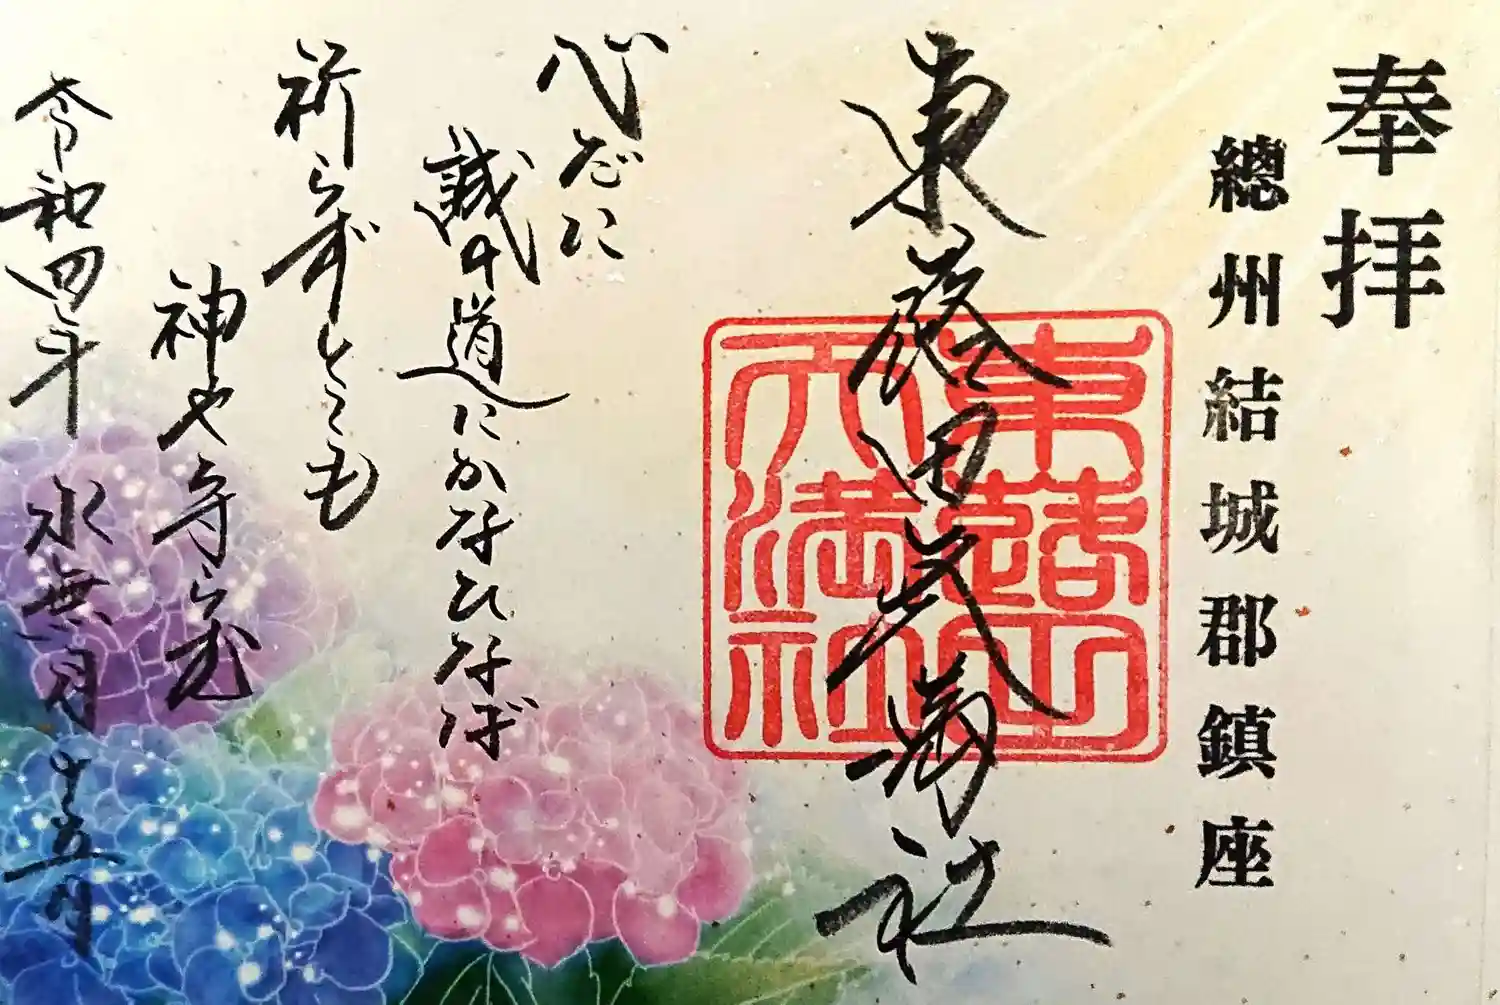 奉拝
總州結城郡鎮座
東蕗田天満社
東蕗田
天満社
心だに
誠の道にかなひなば
祈らずとても
神や守らむ
令和四年 水無月十五日